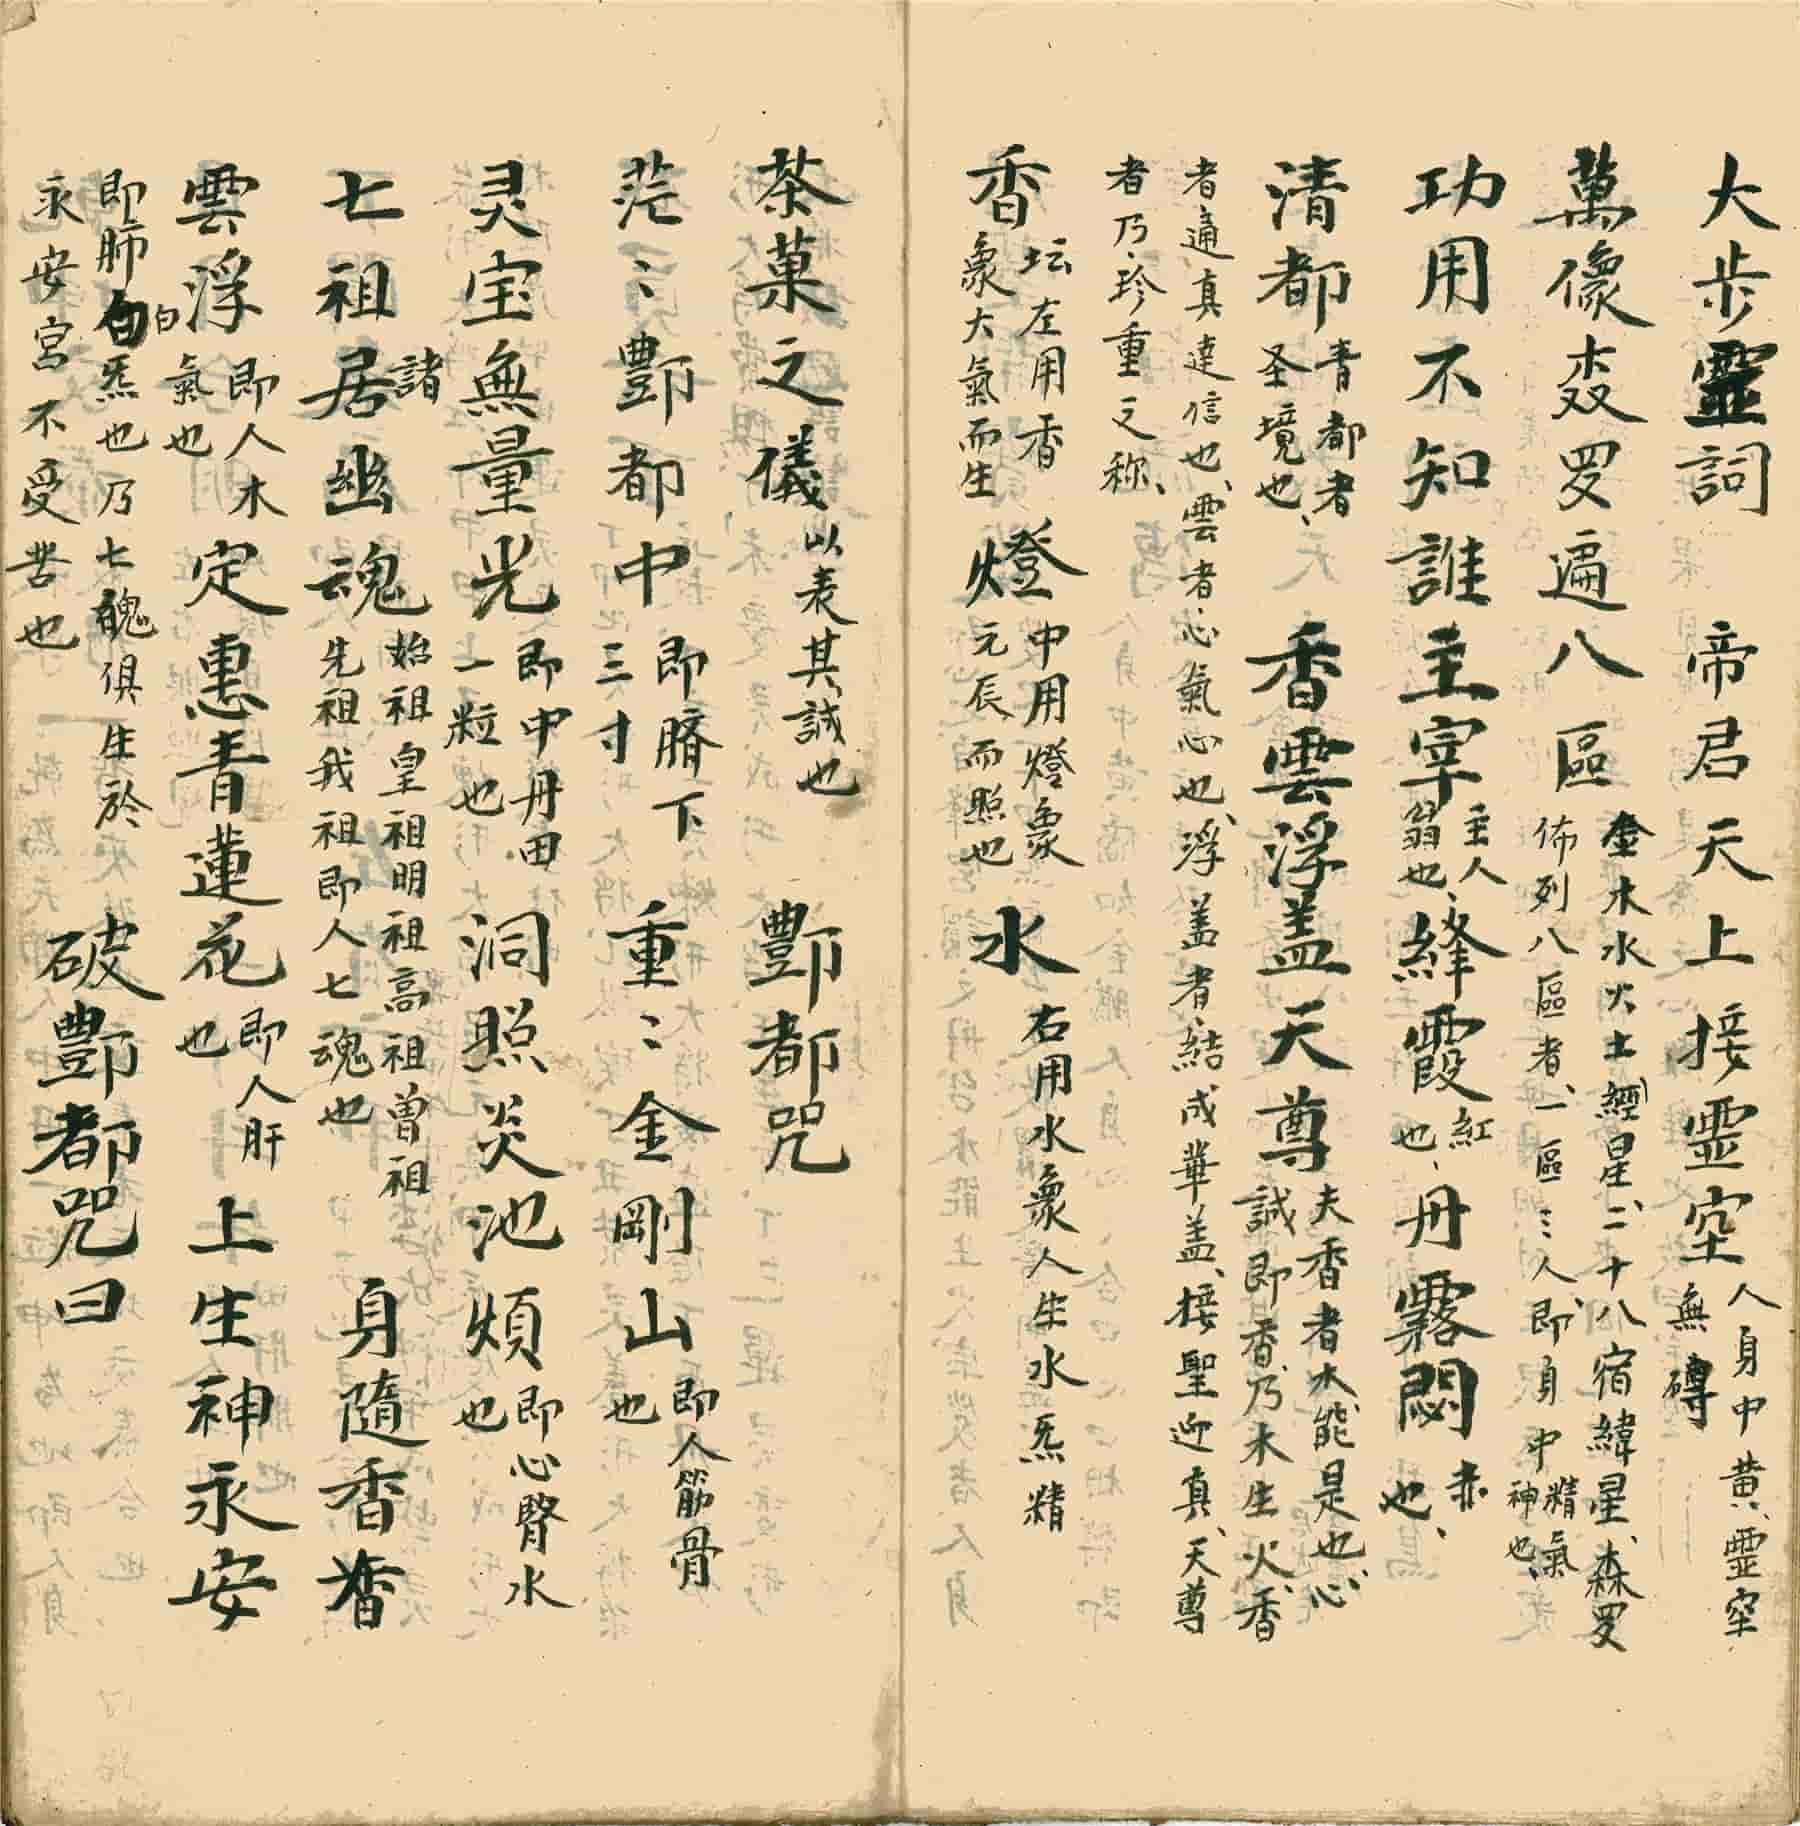 大步靈詞　帝君天上接霊空 人身中黄霊空 無磚
萬像森罗遍八區 金木水火土經星、二十八宿緯星、森罗 佈列八區者、一區三人、即身中精氣神也、
功用不知誰主宰 主人翁也、絳霞 紅也、丹霧悶 赤也、
清都 青都者圣境也、香雲浮盖天尊 夫香者木、能是也、心 誠即香、乃木生火、香
者通真達信也、雲者心氣心也、浮盖者、結成華盖、接聖迎真、天尊
者乃珍重之称、
香 坛左用香象大氣而生 燈 中用燈象元辰而照也 水 右用水象人生水炁精
茶菓之儀 以表其誠也　酆都咒
茫〻酆都中 即臍下三寸 重〻金剛山 即人筋骨也
灵宝無量光 即中丹田一粒也 洞照炎池煩 即心腎水也
七祖諸居幽魂 始祖皇祖明祖高祖曾祖先祖我祖即人七魂也 身隨香
雲浮 即人木氣也 定惠青蓮花 即人肝也 上生神永安
即肺白炁也乃七魄俱生於
永安宮不受苦也 破酆都咒曰